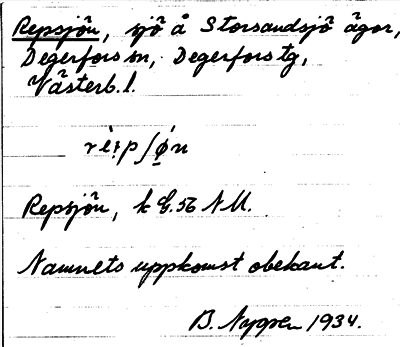 Repsjön, sjö å Storsandsjö ägor,
Degerfors sn, Degerfors tg,
Västerb. l.
Repsjön, k E.56 N M.
Namnets uppkomst obekant.
B. Nygren 1934.